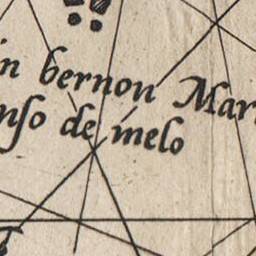 in bernon Mar
nſo de melo